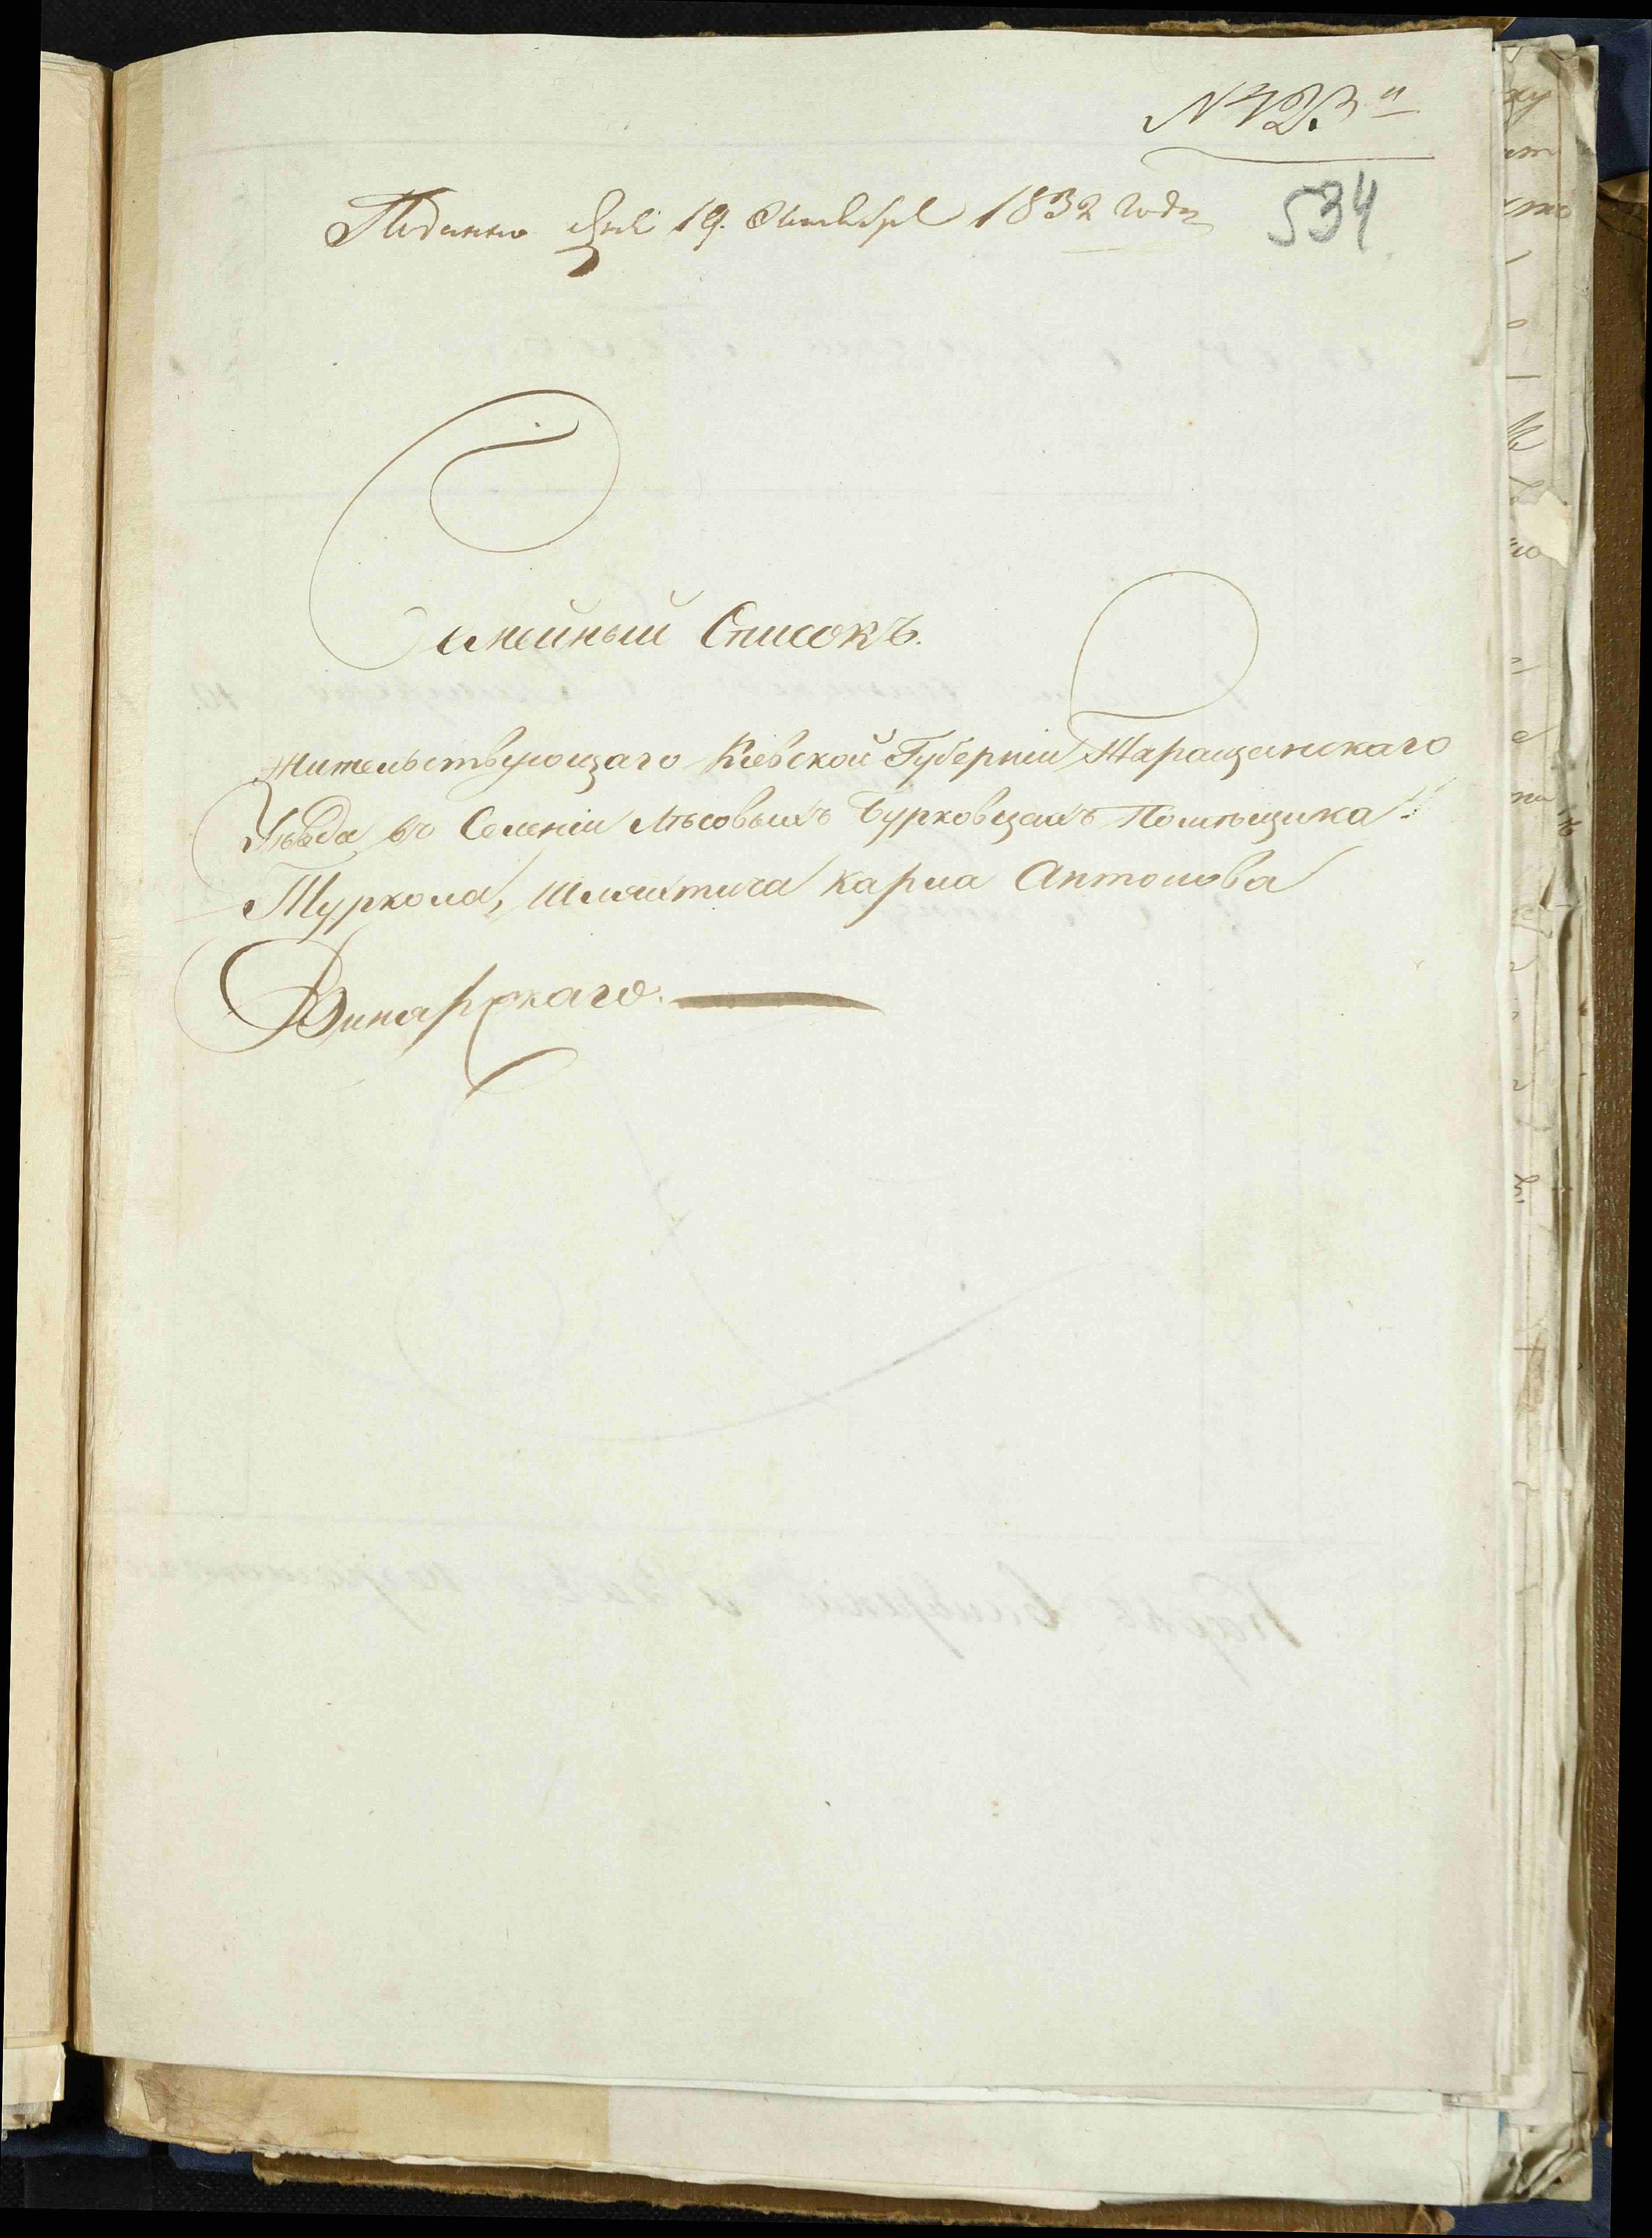 N 423"
Подано Дня 19. Октября 1832 года
534
Семейный Списокъ.
Жительствующаго Кіевской Губерніи Таращанскаго
Уѣзда въ Селеніи Лѣсовыхъ Бурковцахъ Помѣщика
Туркола, Шляхтича Карла Антонова
Винарскаго.